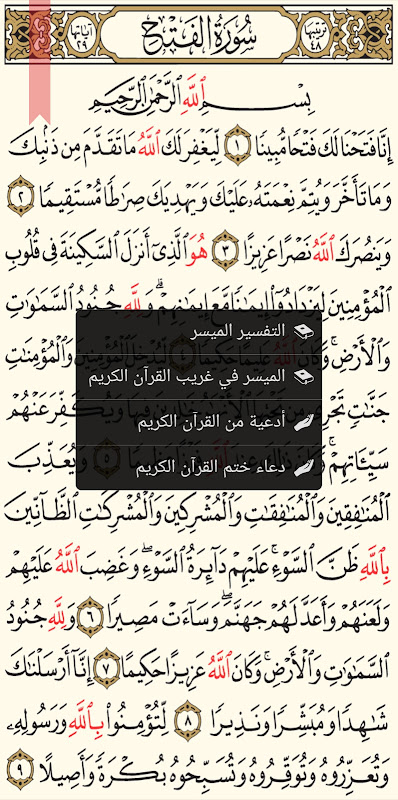 ترتيبها ٤٨ سُورَةُ الفَتْحِ آياتها ٢٩
بِسْمِ ٱللَّهِ ٱلرَّحْمَٰنِ ٱلرَّحِيمِ
إِنَّا فَتَحْنَا لَكَ فَتْحًا مُّبِينًا ١ لِّيَغْفِرَ لَكَ ٱللَّهُ مَا تَقَدَّمَ مِن ذَنۢبِكَ
وَمَا تَأَخَّرَ وَيُتِمَّ نِعْمَتَهُۥ عَلَيْكَ وَيَهْدِيَكَ صِرَٰطًا مُّسْتَقِيمًا ٢
وَيَنصُرَكَ ٱللَّهُ نَصْرًا عَزِيزًا ٣ هُوَ ٱلَّذِىٓ أَنزَلَ ٱلسَّكِينَةَ فِى قُلُوبِ
ٱلْمُؤْمِنِينَ لِيَزْدَادُوٓا۟ إِيمَٰنًا مَّعَ إِيمَٰنِهِمْ ۗ وَلِلَّهِ جُنُودُ ٱلسَّمَٰوَٰتِ
وَٱلْأَرْضِ ۚ وَكَانَ ٱللَّهُ عَلِيمًا حَكِيمًا ٤ لِّيُدْخِلَ ٱلْمُؤْمِنِينَ وَٱلْمُؤْمِنَٰتِ
جَنَّٰتٍ تَجْرِى مِن تَحْتِهَا ٱلْأَنْهَٰرُ خَٰلِدِينَ فِيهَا وَيُكَفِّرَ عَنْهُمْ
سَيِّـَٔاتِهِمْ ۚ وَكَانَ ذَٰلِكَ عِندَ ٱللَّهِ فَوْزًا عَظِيمًا ٥ وَيُعَذِّبَ
ٱلْمُنَٰفِقِينَ وَٱلْمُنَٰفِقَٰتِ وَٱلْمُشْرِكِينَ وَٱلْمُشْرِكَٰتِ ٱلظَّآنِّينَ
بِٱللَّهِ ظَنَّ ٱلسَّوْءِ ۚ عَلَيْهِمْ دَآئِرَةُ ٱلسَّوْءِ ۖ وَغَضِبَ ٱللَّهُ عَلَيْهِمْ
وَلَعَنَهُمْ وَأَعَدَّ لَهُمْ جَهَنَّمَ ۖ وَسَآءَتْ مَصِيرًا ٦ وَلِلَّهِ جُنُودُ
ٱلسَّمَٰوَٰتِ وَٱلْأَرْضِ ۚ وَكَانَ ٱللَّهُ عَزِيزًا حَكِيمًا ٧ إِنَّآ أَرْسَلْنَٰكَ
شَٰهِدًا وَمُبَشِّرًا وَنَذِيرًا ٨ لِّتُؤْمِنُوا۟ بِٱللَّهِ وَرَسُولِهِۦ
وَتُعَزِّرُوهُ وَتُوَقِّرُوهُ وَتُسَبِّحُوهُ بُكْرَةً وَأَصِيلًا ٩
التفسير الميسر
الميسر في غريب القرآن الكريم
أدعية من القرآن الكريم
دعاء ختم القرآن الكريم